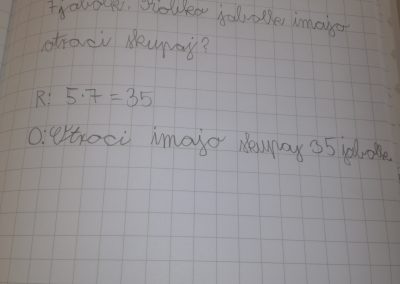 7 jabolk. Koliko jabolk imajo
otroci skupaj?
R: 5·7=35
O: Otroci imajo skupaj 35 jabolk.